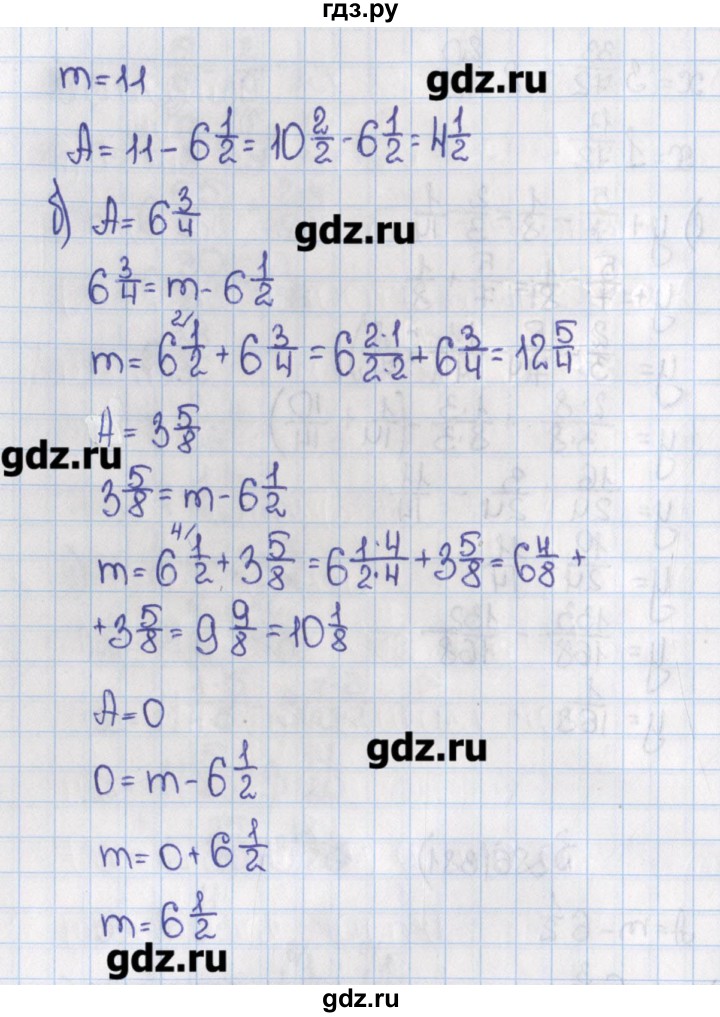 гдз.ру
m = 11
gdz.ru
A = 11 - 6 1/2 = 10 2/2 - 6 1/2 = 4 1/2
б) A = 6 3/4
gdz.ru
6 3/4 = m - 6 1/2
m = 6 1/2 + 6 3/4 = 6 2·1/2·2 + 6 3/4 = 12 5/4
A = 3 5/8
gdz.ru
3 5/8 = m - 6 1/2
m = 6 1/2 + 3 5/8 = 6 1·4/2·4 + 3 5/8 = 6 4/8 +
+ 3 5/8 = 9 9/8 = 10 1/8
A = 0
gdz.ru
0 = m - 6 1/2
m = 0 + 6 1/2
m = 6 1/2
gdz.ru
gdz.ru